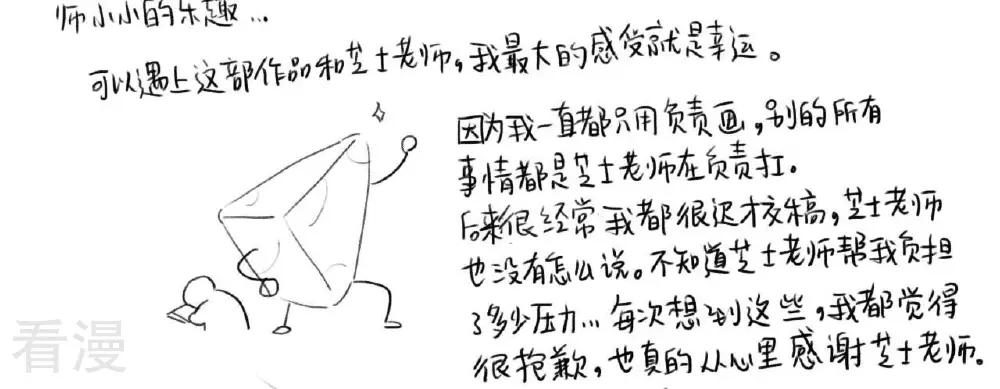 师小小的乐趣...
可以遇上这部作品和芝士老师,我最大的感受就是幸运。
因为我一直都只用负责画,别的所有
事情都是芝士老师在负责扛。
后来很经常我都很迟才交稿,芝士老师
也没有怎么说。不知道芝士老师帮我负担
了多少压力...每次想到这些,我都觉得
很抱歉,也真的从心里感谢芝士老师。
看漫